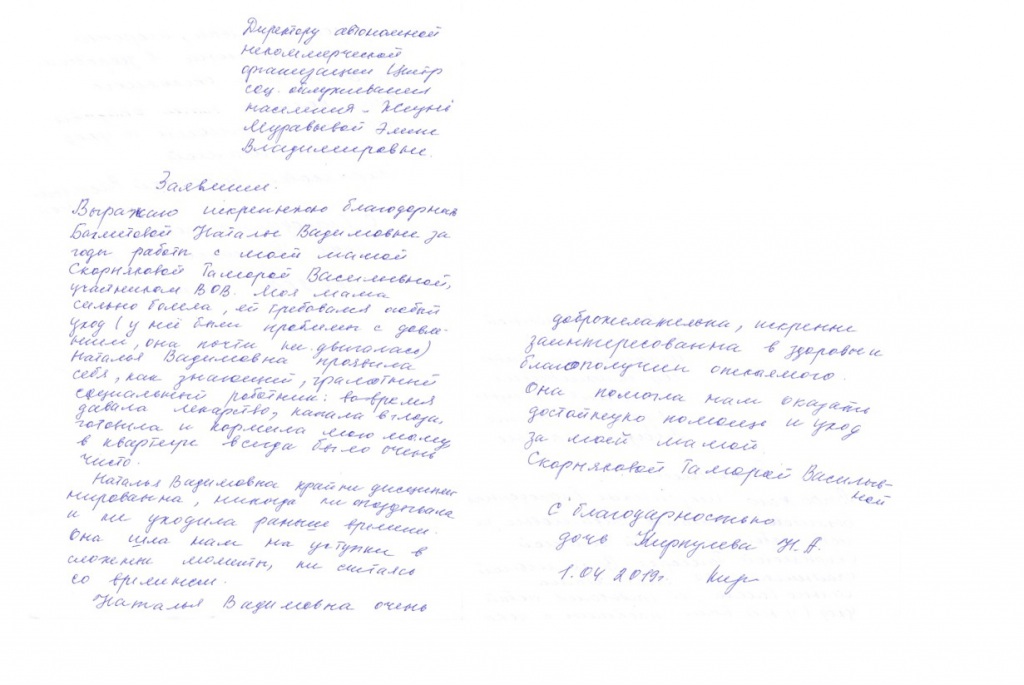 Директору автономной
некоммерческой
организации Центр
соц. обслуживания
населения -
Муравьевой Элине
Владимировне.
Заявление.
Выражаю искреннюю благодарность
Бахметовой Наталье Вадимовне за
годы работы с моей мамой
Скорняковой Тамарой Васильевной,
участником ВОВ. Моя мама
сильно болела, ей требовался особый
уход (у неё были проблемы с давле-
нием, она почти не двигалась)
Наталья Вадимовна проявила
себя, как знающий, грамотный
социальный работник: во время
давала лекарство, капала в глаза,
готовила и кормила мою маму
в квартире всегда было очень
чисто.
Наталья Вадимовна крайне дисципли-
нированна, никогда не опаздывала
и не уходила раньше времени.
Она шла нам на уступки в
сложные моменты, не считаясь
со временем.
Наталья Вадимовна очень
доброжелательна, искренне
заинтересованна в здоровье и
благополучии опекаемого.
Она помогла нам оказать
достойную помощь и уход
за моей мамой
Скорняковой Тамарой Василье-
вной
С благодарностью
дочь Н.А.
1.04 2019г.